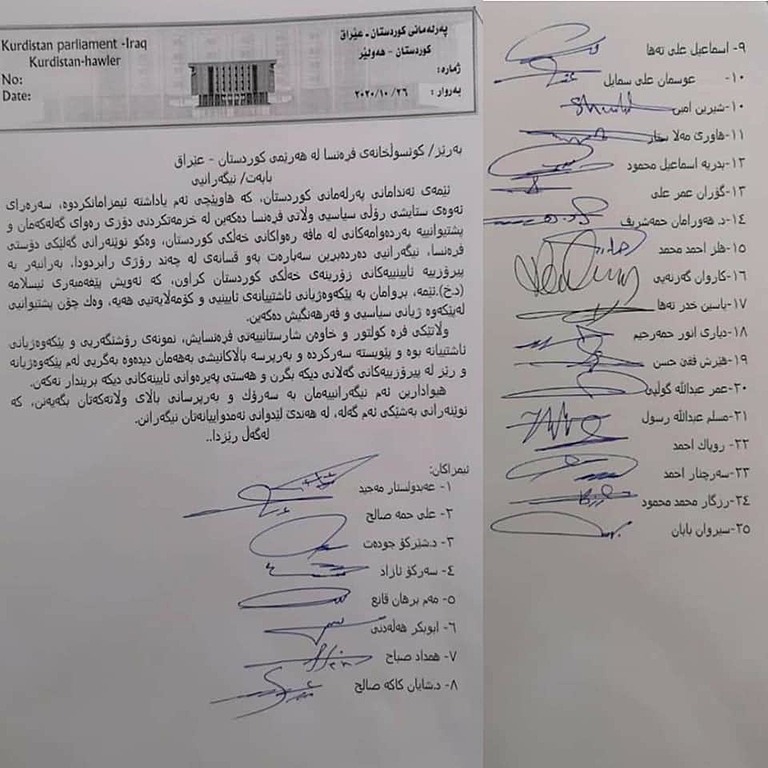 Kurdistan parliament -Iraq
Kurdistan-hawler
No:
Date:
پەرلەمانی کوردستان - عێراق
کوردستان - هەولێر
ژمارە:
بەروار : ٢٠٢٠/١٠/٢٦
بەڕێز/ کونسوڵخانەی فرەنسا لە هەرێمی کوردستان - عێراق
بابەت/ نیگەرانیی
ئێمەی ئەندامانی پەرلەمانی کوردستان، کە هاوپێچی ئەم یاداشتە ئیمزامانکردوە، سەرەڕای
ئەوەی ستایشی ڕۆڵی سیاسیی ولاتی فرەنسا دەکەین لە خزمەتکردنی دۆزی ڕەوای گەلەکەمان و
پشتیوانییە بەردەوامەکانی لە مافە ڕەواکانی خەڵکی کوردستان، وەکو نوێنەرانی گەلێکی دۆستی
فرەنسا، نیگەرانیی دەردەبڕین سەبارەت بەو قسانەی لە چەند ڕۆژی ڕابردودا، بەرانبەر بە
پیرۆزییە ئایینییەکانی زۆرینەی خەڵکی کوردستان کراون، کە ئەویش پێغەمبەری ئیسلامە
(د.خ).ئێمە، بڕوامان بە پێکەوەژیانی ئاشتییانەی ئایینی و کۆمەڵایەتیی هەیە، وەك چۆن پشتیوانیی
لەپێکەوە ژیانی سیاسیی و فەرهەنگیش دەکەین.
ولاتێکی فرە کولتور و خاوەن شارستانییەتی فرەنسایش، نمونەی ڕۆشنگەریی و پێکەوەژیانی
ئاشتییانە بوە و پێویستە سەرکردە و بەرپرسە باڵاکانیشی بەهەمان دیدەوە بەگریی لەم پێکەوەژیانە
و ڕێز لە پیرۆزییەکانی گەلانی دیکە بگرن و هەستی پەیڕەوانی ئایینەکانی دیکە بریندار نەکەن.
هیوادارین ئەم نیگەرانییەمان بە سەرۆك و بەرپرسانی باڵای ولاتەکەتان بگەیەنن، کە
نوێنەرانی بەشێکی ئەم گەلە، لە هەندێ لێدوانی ئەمدواییانەتان نیگەرانن.
لەگەڵ ڕێزدا..
ئیمزاکان:
١- عەبدولستار مەجید
٢- علی حمە صالح
٣- د.شێرکۆ جودەت
٤- سەرکۆ ئازاد
٥- مەم برهان قانع
٦- ابوبکر هەڵەدنی
٧- همداد صباح
٨- د.شایان کاکە صالح
٩- اسماعیل علی تەها
١٠- عوسمان علی سمایل
١٠-شیرین امین
١١- هاوڕێ مەلا ستار
١٢-بدریە اسماعیل محمود
١٣- گۆران عمر علی
١٤- د. هەورامان حمەشریف
١٥- هلز احمد محمد
١٦- کاروان گەزنەیی
١٧-یاسین خدر تەها
١٨- دیاری انور حمەرحیم
١٩- هێرش فقێ حسن
٢٠-عمر عبداللە گوڵپی
٢١- مسلم عبداللە رسول
٢٢- روپاك احمد
٢٣- سەرچنار احمد
٢٤- رزگار محمد محمود
٢٥-سیروان بابان